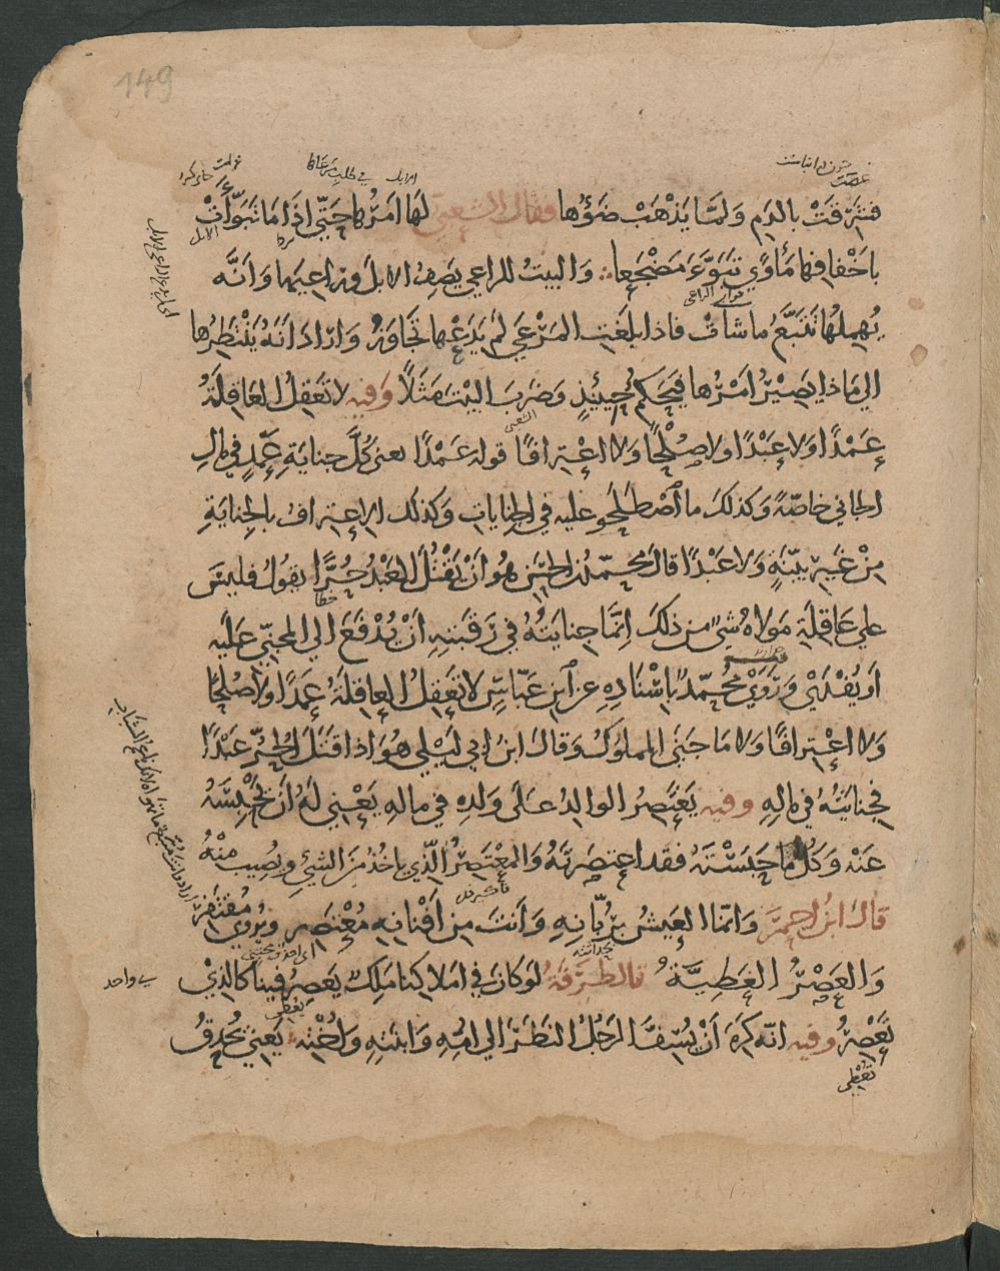 149
فشرقت بالدم ولما يذهب ضوؤها فقال الشعبي لها امرها حتى اذا ما تبوأت
باخفافها مأوى تبوء مضجعا والبيت للراعي يصف الابل وراعيها وانه
يهملها تتبع ما شات فاذا بلغت المرعى لم يدعها تجاوزه واراد انه ينتظرها
الى ماذا يصير امرها فيحكم حينئذ وضرب البيت مثلا وفيه لا تعقل العاقلة
عمدا ولا عبدا ولا صلحا ولا اعترافا قوله عمدا يعني كل جناية عمد في مال
الجاني خاصة وكذلك ما اصطلحو عليه في الجنايات وكذلك الاعتراف بالجناية
من غير بينة ولا عبدا قال محمد بن الحسن هو ان يقتل العبد حرا يقول فليس
على عاقلة مولاه شي من ذلك انما جنايته في رقبته ان يدفع الى المجني عليه
او يفدي وروى محمد باسناده عن ابن عباس لا تعقل العاقلة عمدا ولا صلحا
ولا اعترافا ولا ما جنى المملوك وقال ابن ابي ليلى هو اذا قتل الحر عبدا
فجنايته في ماله وفيه يعتصر الوالد على ولده في ماله يعني له ان يحبسه
عنه وكل ما حبسته فقد اعتصرته والمعتصر الذي ياخذ من الشئ ويصيب منه
قال ابن احمر وانما العيش بربانه وانت من افنانه معتصر ويروى مقتفر
والعصر العطية قال طرفة لو كان في املاكنا ملك يعصر فينا كالذي
تعصر وفيه انه كره ان يسف الرجل النظر الى امه وابنته واخته يعني يحدق
تعطى